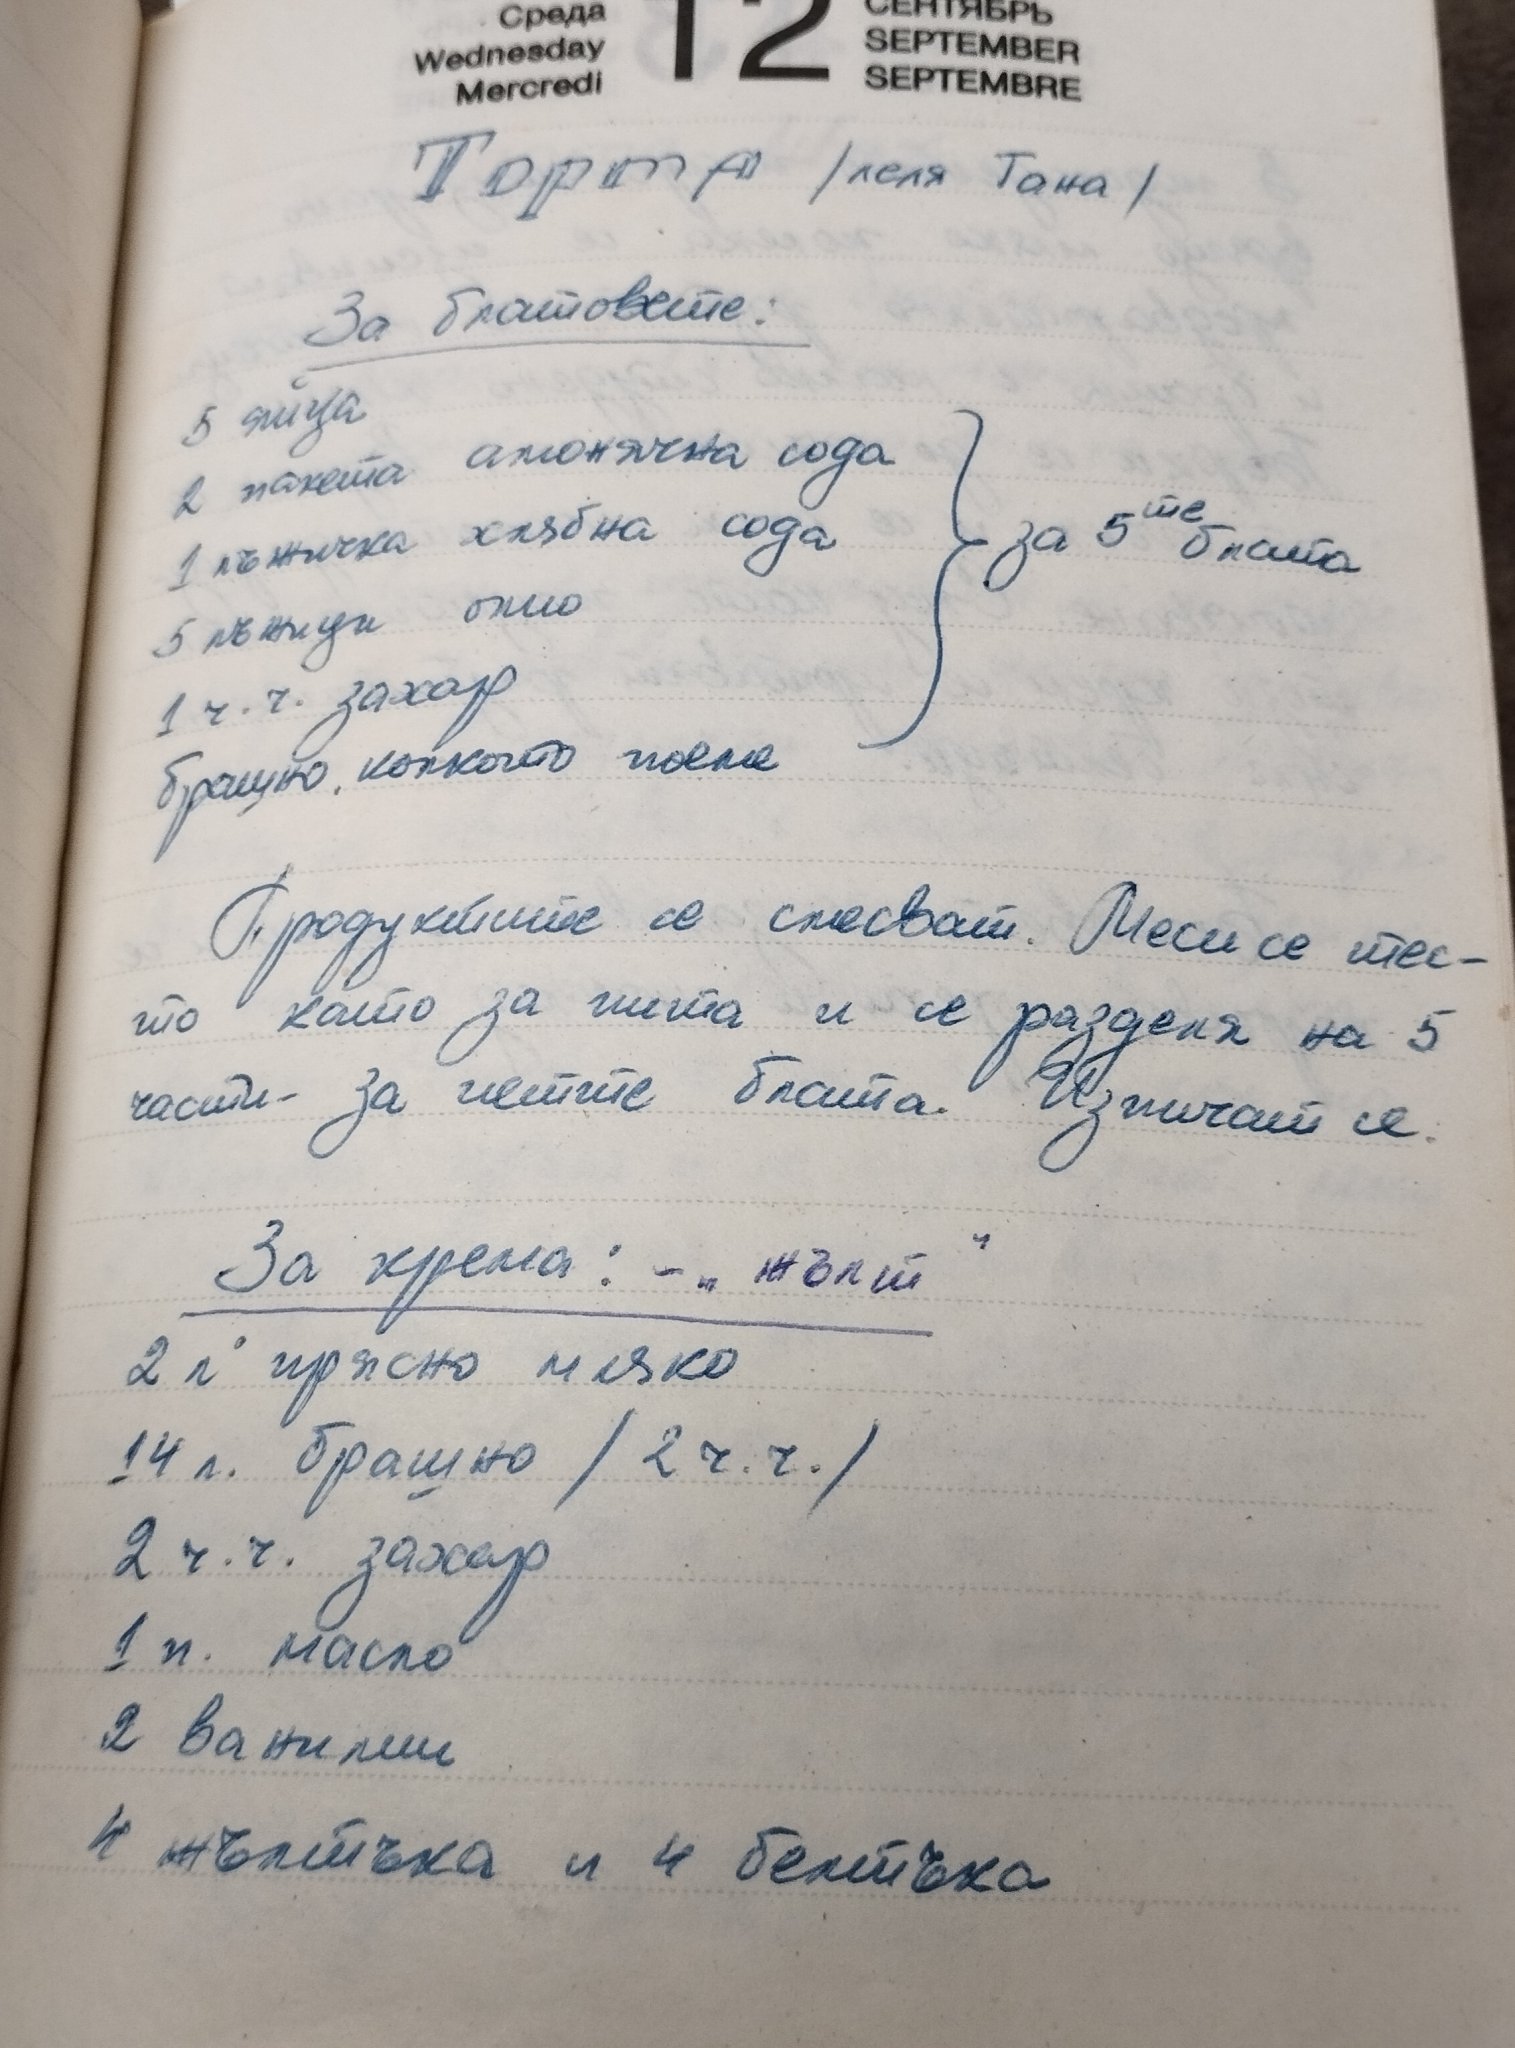 Среда
Wednesday
Mercredi
12
СЕНТЯБРЬ
SEPTEMBER
SEPTEMBRE
Торта /леля Тана/
За блатовете:
5 яйца
2 пакета амонячна сода
1 лъжичка хлябна сода
5 лъжици олио
1 ч.ч. захар
брашно, колкото поеме
за 5те блата
Продуктите се смесват. Меси се тес-
то както за пита и се разделя на 5
части - за петте блата. Изпичат се.
За крема: - „жълт"
2 л прясно мляко
14 л. брашно /2 ч.ч./
2 ч.ч. захар
1 п. масло
2 ванилии
4 жълтъка и 4 белтъка